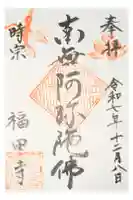 奉拝
令和七年十二月八日
南無阿弥陀佛
時宗
福田寺